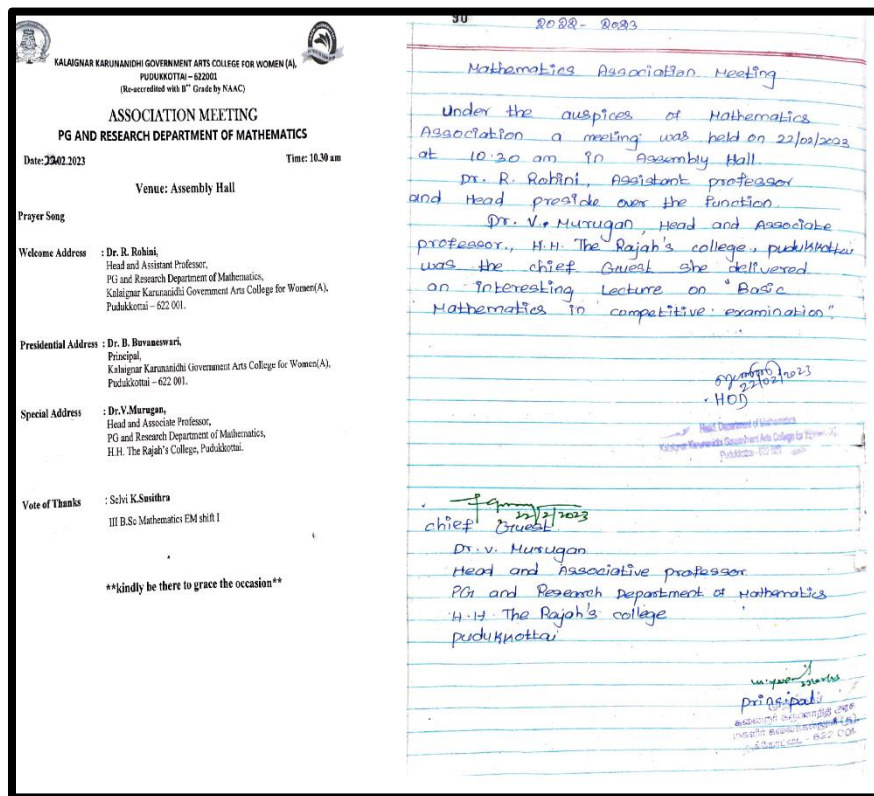 KALAIGNAR KARUNANIDHI GOVERNMENT ARTS COLLEGE FOR WOMEN (A),
PUDUKKOTTAI – 622001
(Re-accredited with B++ Grade by NAAC)
ASSOCIATION MEETING
PG AND RESEARCH DEPARTMENT OF MATHEMATICS
Date:22.02.2023 Time: 10.30 am
Venue: Assembly Hall
Prayer Song
Welcome Address : Dr. R. Rohini,
Head and Assistant Professor,
PG and Research Department of Mathematics,
Kalaignar Karunanidhi Government Arts College for Women(A),
Pudukottai – 622 001.
Presidential Address : Dr. B. Buvaneswari,
Principal,
Kalaignar Karunanidhi Government Arts College for Women(A),
Pudukottai – 622 001.
Special Address : Dr.V.Murugan,
Head and Associate Professor,
PG and Research Department of Mathematics,
H.H. The Rajah's College, Pudukkottai.
Vote of Thanks : Selvi K.Susithra
III B.Sc Mathematics EM shift I
**kindly be there to grace the occasion**
90
2022 - 2023
Mathematics Association Meeting
Under the auspices of Mathematics
Association a meeting was held on 22/02/2023
at 10.30 am in Assembly Hall.
Dr. R. Rohini, Assistant professor
and Head preside over the function.
Dr. V. Murugan, Head and Associate
professor., H.H. The Rajah's college, pudukkottai
was the chief Guest she delivered
an interesting Lecture on "Basic
Mathematics in competitive examination".
22/02/2023
HOD
Head, Department of Mathematics
Kalaignar Karunanidhi Government Arts College for Women (A),
Pudukkottai - 622 001
22/2/2023
chief Guest
Dr. V. Murugan
Head and Associative professor
PG and Research Department of Mathematics
H.H. The Rajah's college
pudukkottai
principal
கலைஞர் கருணாநிதி அரசு
மகளிர் கலைக்கல்லூரி (த),
புதுக்கோட்டை - 622 001